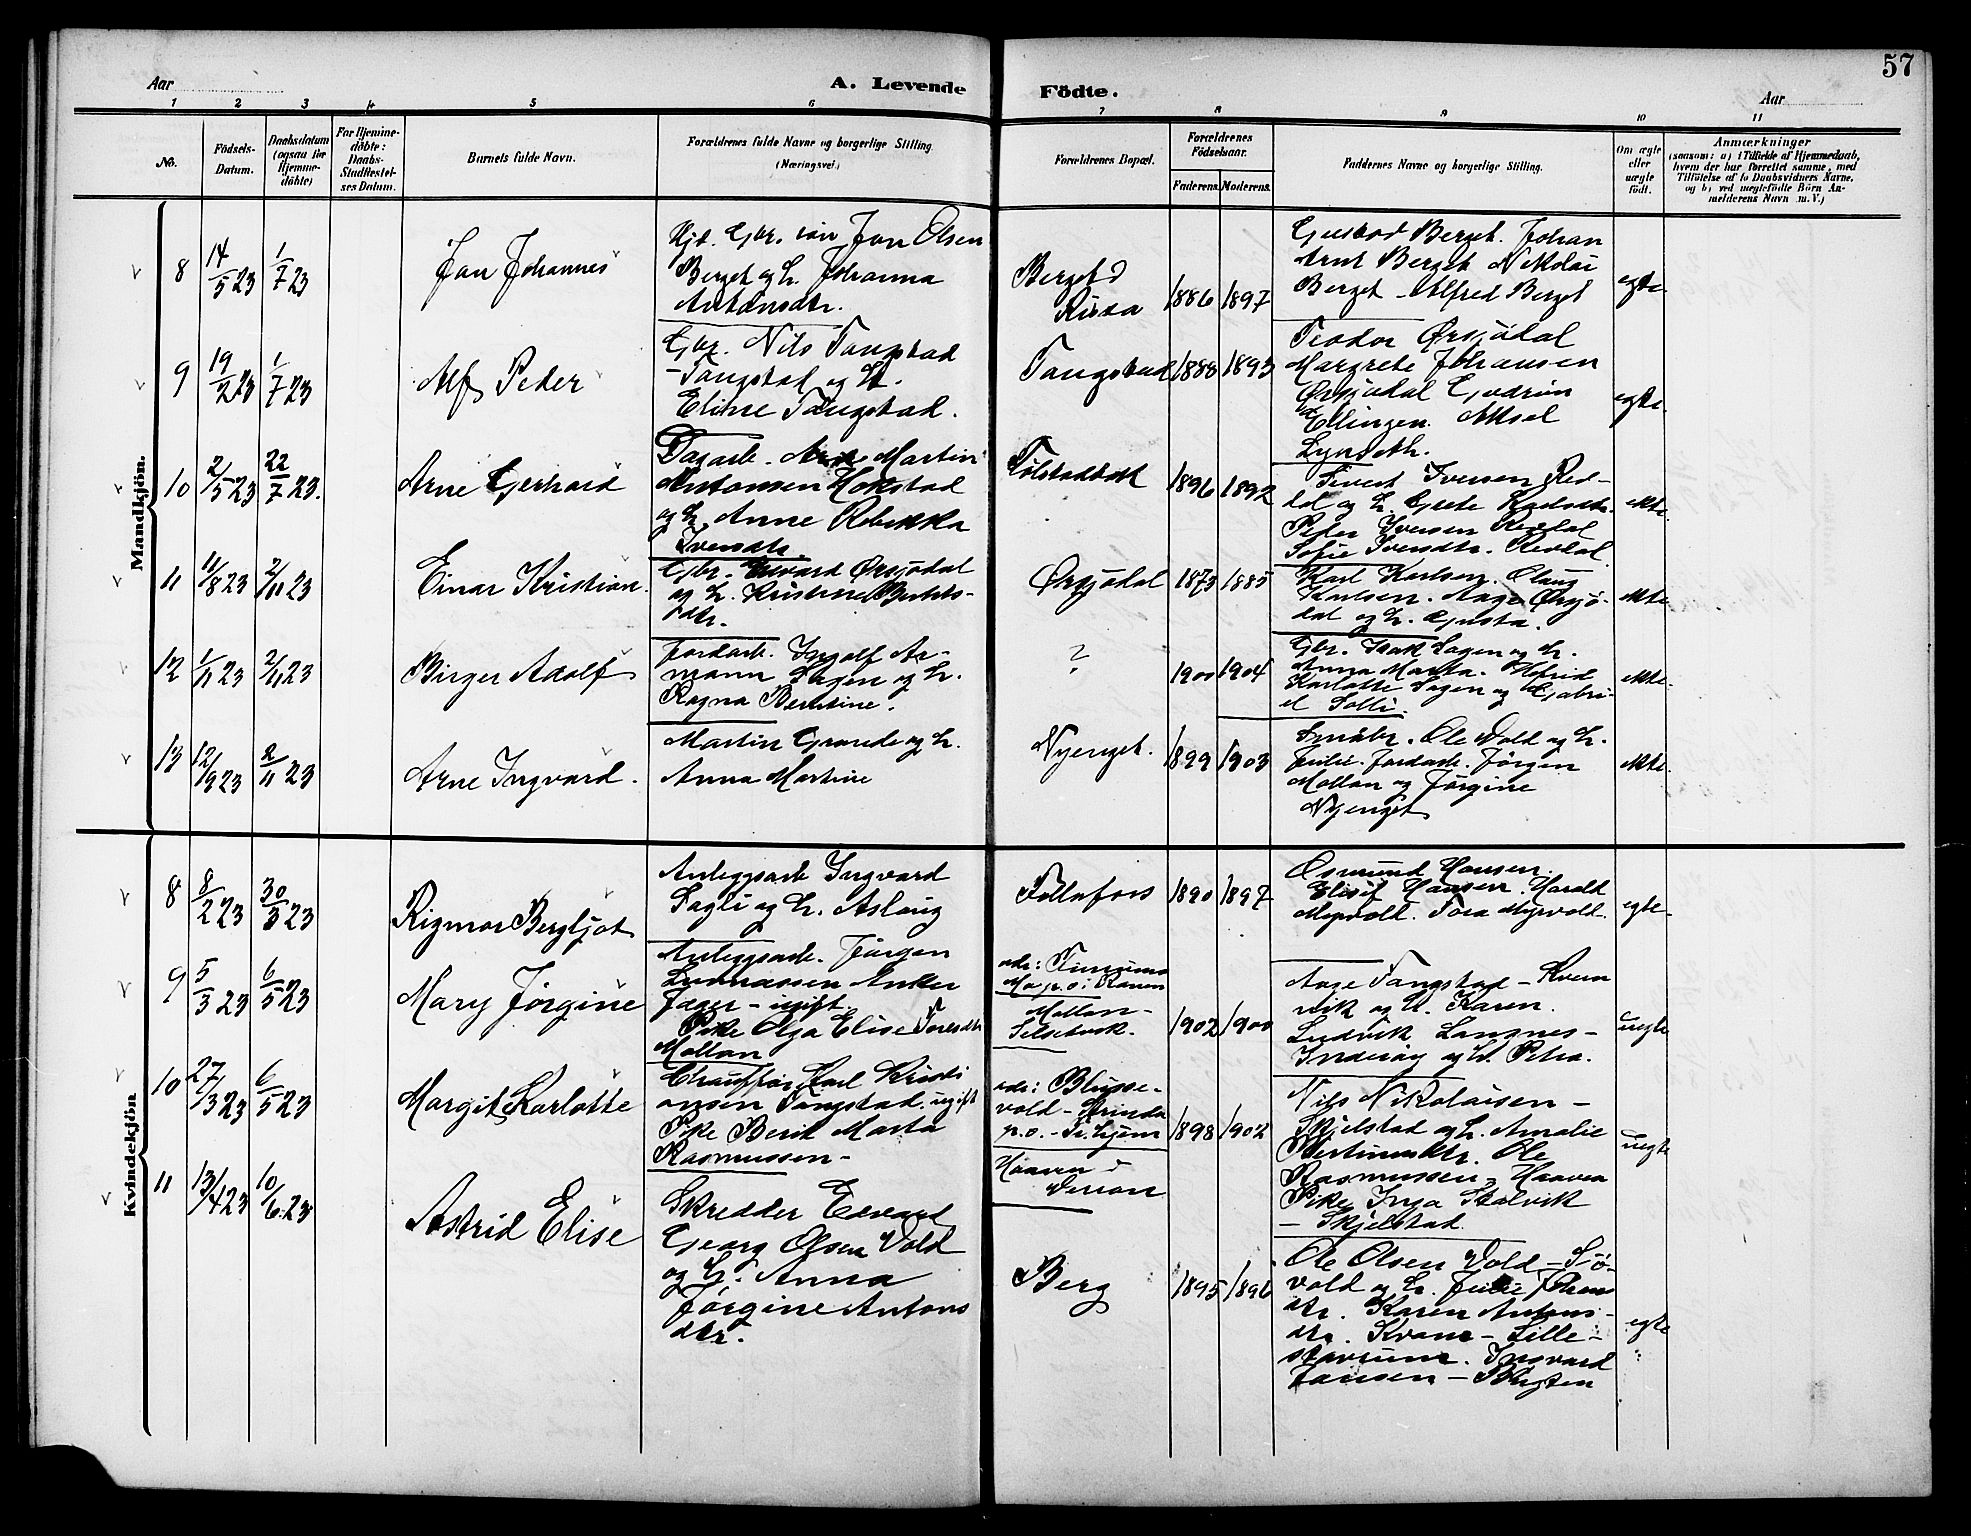 57
Aar
A. Levende
Födte.
Aar
1 2 3 4 5 6 7 8 9 10 11
No.
Födsels-
Datum.
Daabsdatum
(ogsaa for
Hjemme-
döbte)
For Hjemme-
döbte:
Daabs-
Stadfæstel-
ses Datum.
Barnets fulde Navn.
Forældrenes fulde Navne og borgerlige Stilling
(Næringsvei.)
Forældrenes Bopæl.
Forældrenes
Födselsaar.
Faderens. Moderens.
Faddernes Navne og borgerlige Stilling.
Om ægte
eller
uægte
födt.
Anmærkninger
(saasom: a) i Tilfælde af Hjemmedaab,
hvem der har forrettet samme, med
Tilföielse af to Daabsvidners Navne,
og b) ved uægtefödte Börn An-
melderens Navn m. V.)
Mandkjön.
8
14/5 23
1/7 23
Jan Johannes
Gbr. Jon Olsen
Berget og H. Johanna
Antonsdtr.
Berget i
Rissa
1886 1897
Gustav Berget. Johan
Arnt Berget Nikolai
Berget - Alfred Berget
egte.
9
19/2 23
1/7 23
Alf Peder
Gbr. Nils Tangstad
- Tangstad og H.
Eline Tangstad.
Tangstad
1888 1893
Teodor Ørsjødal
Margrete Johansen
Ørsjødal Gudrun
Ellingen. Aksel
Lynseth.
egte.
10
2/5 23
22/7 23.
Arne Gerhard
Dagarb. Arne Martin
Antonsen Hokstad
og H. Anne Rebekka
Iversdtr.
1896 1892
Sivert Iversen Red-
dal og H. Grete Karlsdtr.
Peder Iversen Reddal
Sofie Iversdtr. Reddal
ekte.
11
11/8 23
2/11 23
Einar Kristian.
Gbr. Edvard Ørsjødal
og H. Kristine Berhts-
dtr.
Ørsjødal
1873 1885
Karl Karlsen. Olaug
Karlsen. Aage Ørsjø-
dal og H. Gusta.
ekte.
12
1/11 23
2/11 23
Birger Adolf
Jordarb. Ingolf Ar-
mann Sagen og H.
Ragna Berntine.
?
1900 1904
Gbr. Isak Sagen og H.
Anna Marta.
Karlotte Sagen og Gabri-
el Solli.
ekte.
13
12/9 23
2/11 23
Arne Ingvard.
Martin Grande og H.
Anna Martine
Nyenget.
1899 1903
Småbr. Ole Vold og H.
Julie. Jordarb. Jørgen
Mollan og Jørgine
Nyenget
ekte.
Kvindekjön
8
8/2 23
30/3 23
Rigmor Bergljot
Anleggsarb Ingvard
Sagli og H. Aslaug
Follafoss
1890 1897
Osmund Hansen.
Elisif Hansen. Harald
Myrvold. Tora Myrvold.
egte.
9
5/3 23
6/5 23
Mary Jørgine
Anleggsarb. Jørgen
Anker
- ugift
Pike Olga Elise Toresdtr
Mollan
adr:
Mo p.o. i Ranen
Mollan -
1902 1900
Aage Tangstad - Kvern
vik og H. Karen.
Ludvik Langnes -
Inderøy og H. Petra.
uegte
10
27/3 23
6/5 23
Margit Karlotte
Chauffør Karl Kristi
ansen Tangstad. ugift
Pike Berit Marta
Rasmussen -
adr: Blusse-
vold - Strinda
p.o. - Tr.hjem
Haaven i
Verran
1898 1902
Nils Nikolaisen -
Skjelstad og H. Amalie
Bertinusdtr. Ole
Rasmussen - Haaven
Pike Inga Stalvik
- Skjelstad.
uegte
11
13/4 23
10/6 23
Astrid Elise
Skredder Edvard
Georg Olsen Vold
og H. Anna
Jørgine Antons
dtr.
Berg
1895 1896
Ole Olsen Vold - Sjø-
vold og H. Julie Johans
dtr. Karen Antons-
dtr. Kvam - Lille-
Ingvard
Jansen -
egte